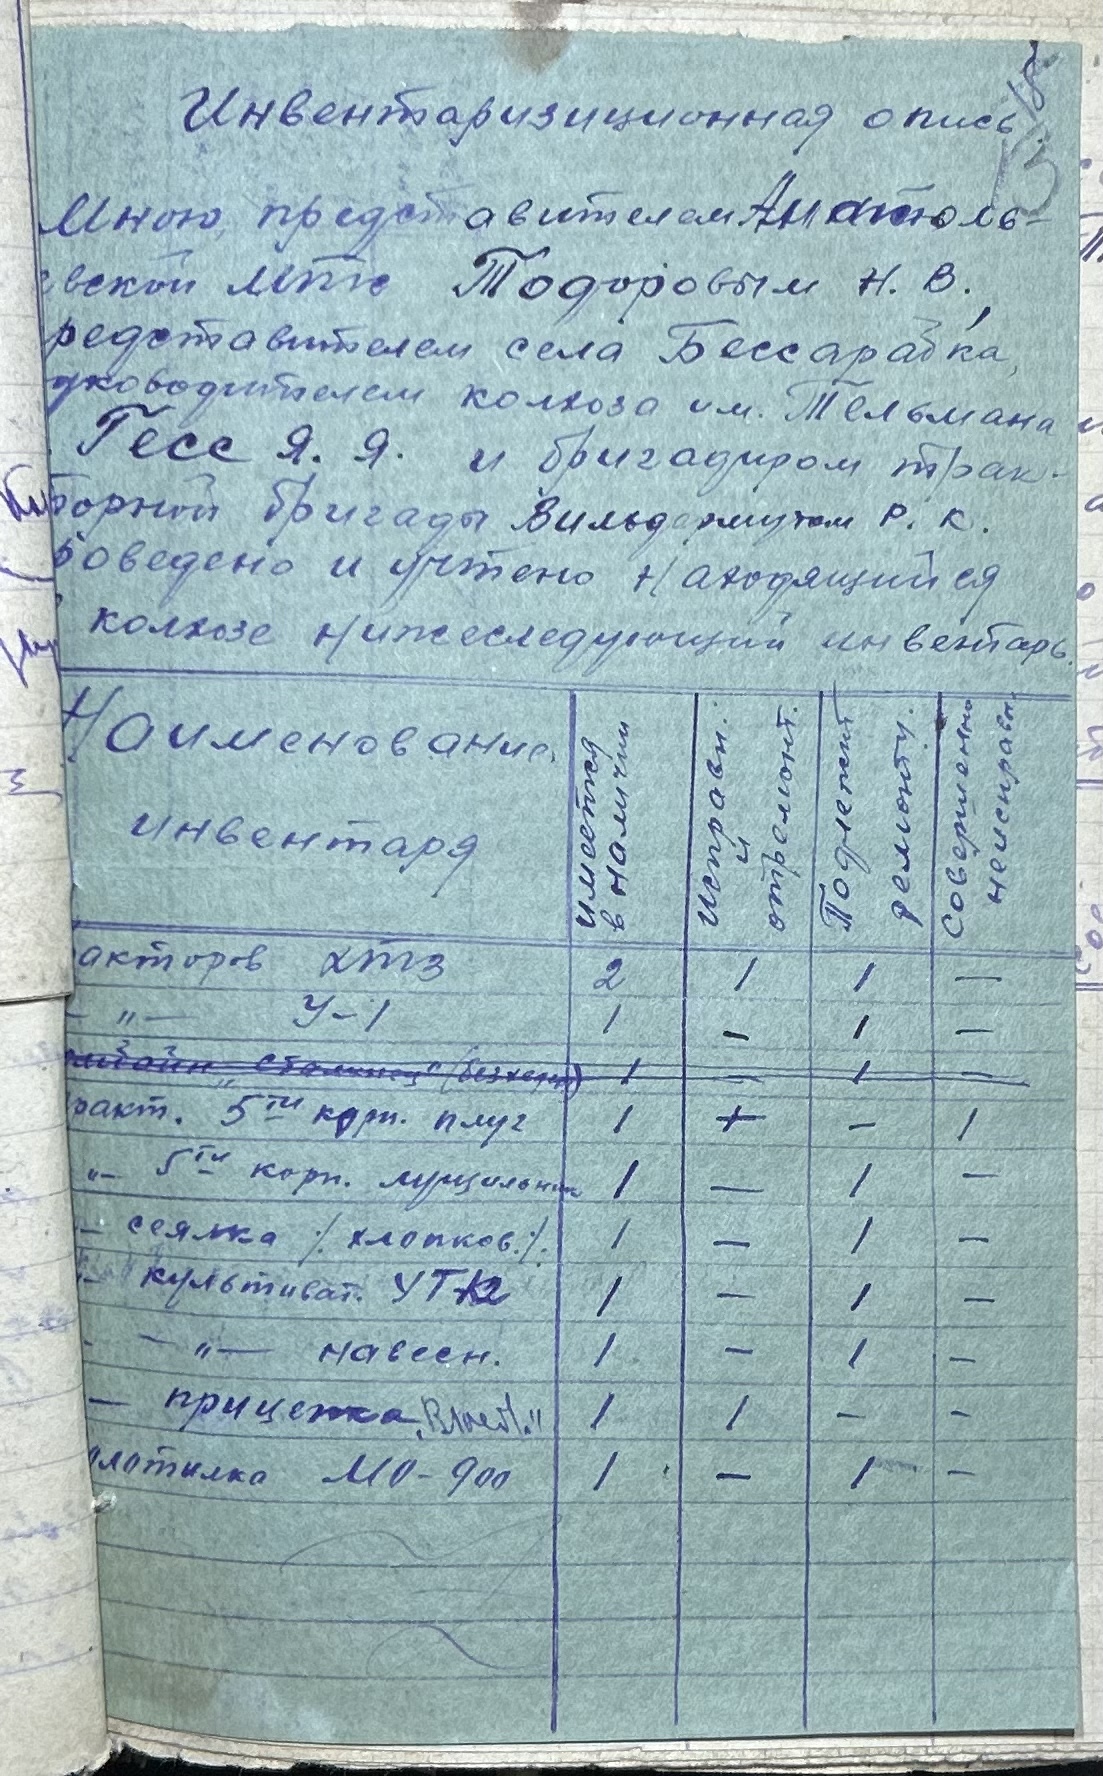 Инвентаризиционная опись.
Мною, представителем Анатоль-
евской МТС Тодоровым Н. В.,
редставителем села Бессарабка,
уководителем колхоза им. Тельмана
Гесс Я. Я. и бригадиром трак-
торной бригады Вильдермутом Р. К.
роведено и учтено находящийся
колхозе нижеследующий инвентарь.
Наименование инвентаря | имеется в наличии | Исправн. и отремонт. | Подлежит ремонту. | Совершенно неисправн.
акторов ХТЗ 2 1 1 —
— „ — У-1 1 — 1 —
омбайн „Сталинец" 1 — 1 —
ракт. 5ти корп. плуг 1 + — 1
„— 5ти корп. лущильник 1 — 1 —
— сеялка /. хлопков. /. 1 — 1 —
„— культиват. УТК2 1 — 1 —
— „ — навесн. 1 — 1 —
— прицепка 1 1 — —
олотилка МО-900 1 — 1 —